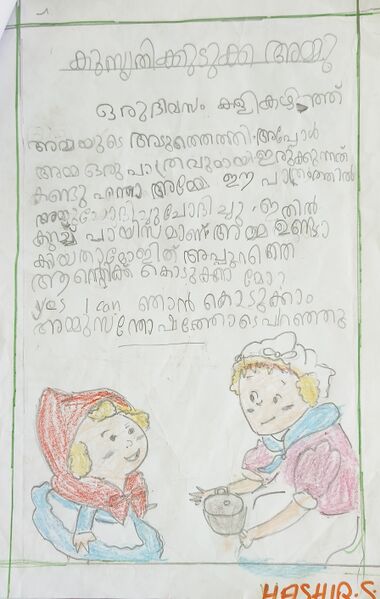 കുസൃതിക്കുടുക്ക അമ്മു
ഒരു ദിവസം കളികഴിഞ്ഞ്
അമ്മയുടെ അടുത്തെത്തി. അപ്പോൾ
അമ്മ ഒരു പാത്രവുമായി ഇരുക്കുന്നത്
കണ്ടു എന്താ അമ്മേ ഈ പാത്രത്തിൽ
അമ്മു ചോദിച്ചു ചോദിച്ചു. ഇതിൽ
കുറച്ച് പായിസമാണ് അമ്മ ഉണ്ടാ
ക്കിയതു മോളിത് അപ്പുറത്തെ
ആന്റിക്ക് കൊടുക്കാ മോ?
yes I can ഞാൻ കൊടുക്കാം
അമ്മു സന്തോഷത്തോടെ പറഞ്ഞു
HASHIR.S